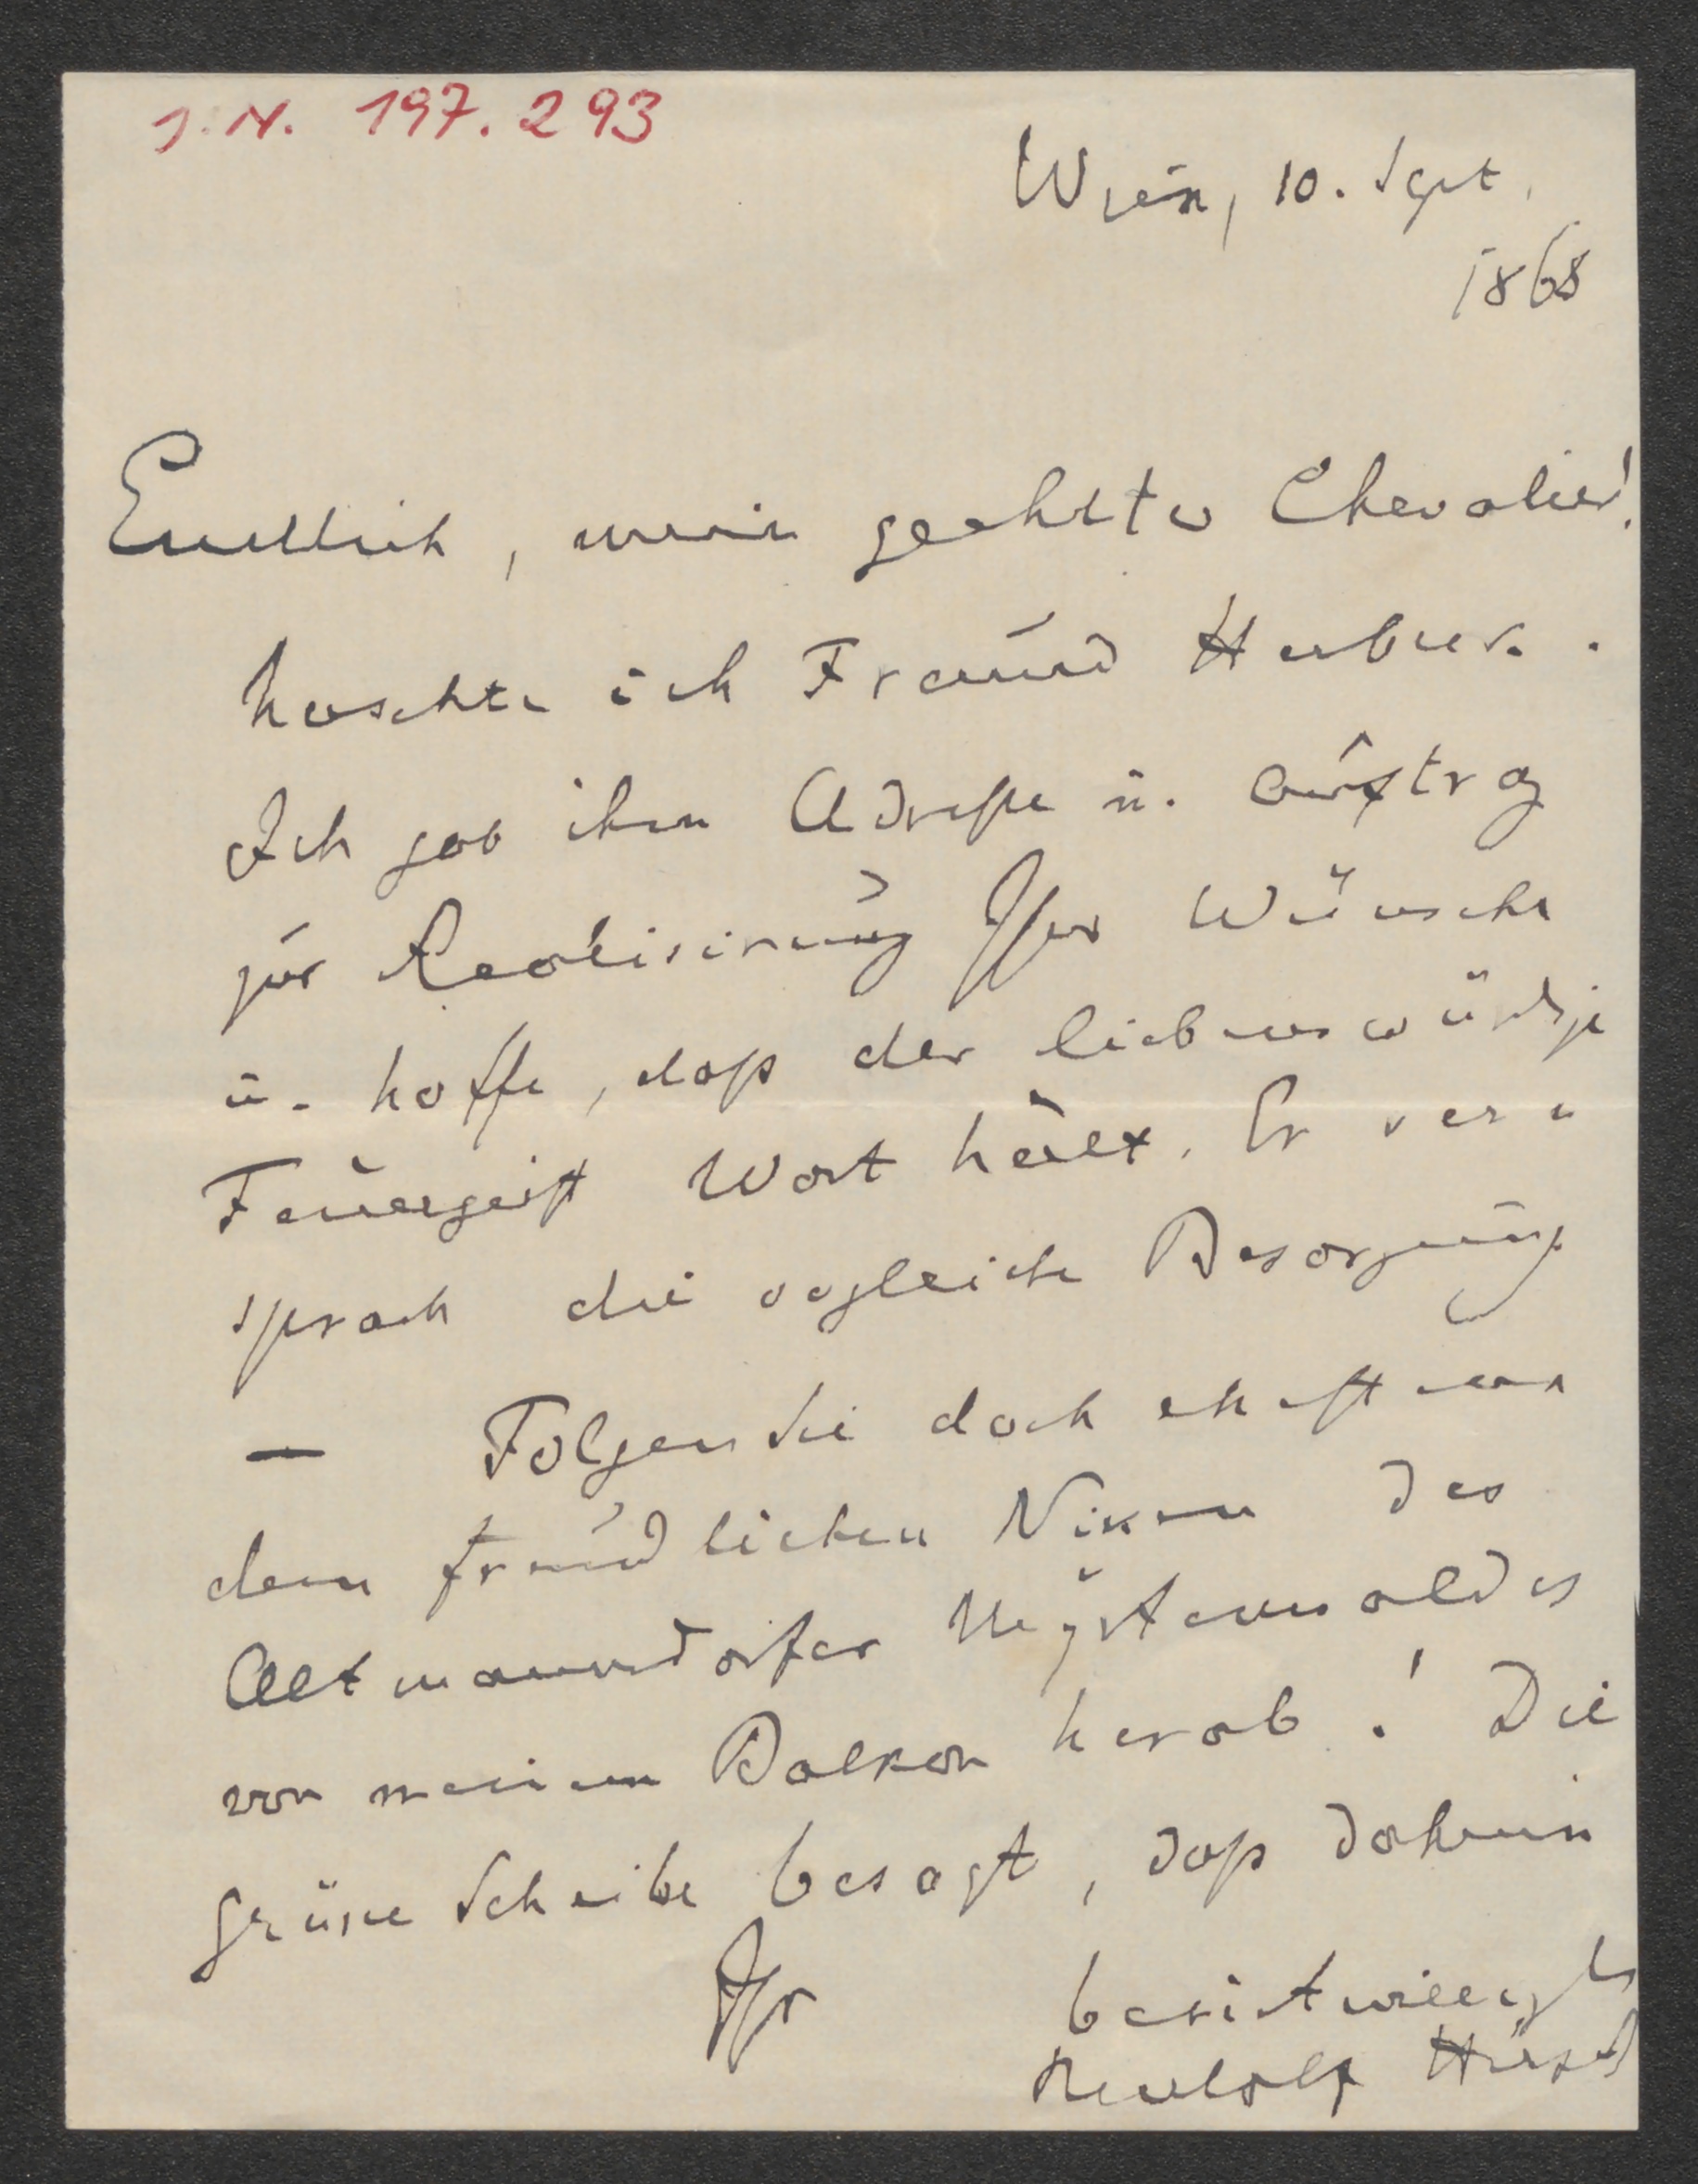 J. N. 197.293
Wien, 10. Sept.
1868
Endlich, mein geehrter Chevalier!
haschte ich Freund
Ich gab ihm Adreße u. Auftrag
zur Realisirung Ihrer Wünsche
u. hoffe, daß der liebenswürdige
Feuergeist Wort hält. Er ver-
sprach die sogleiche Besorgung
— Folgen Sie doch ehestens
dem freundlichen Niken des
Altmannsdorfer
von meinem Balkon herab! Die
grüne Scheibe besagt, daß daheim
Ihr bereitwilligster
Rudolf Hirsch